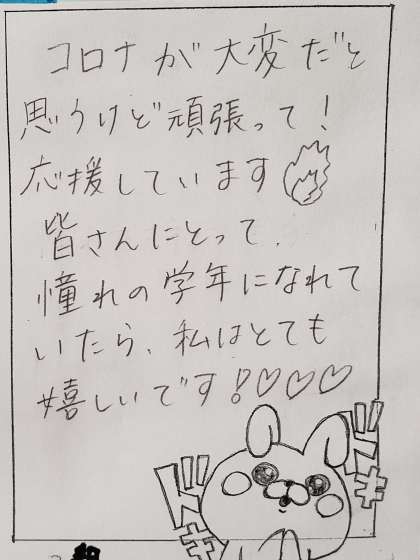 コロナが大変だと
思うけど頑張って！
応援しています
皆さんにとって、
憧れの学年になれて
いたら、私はとても
嬉しいです！♡♡♡
ドキ
ドキ